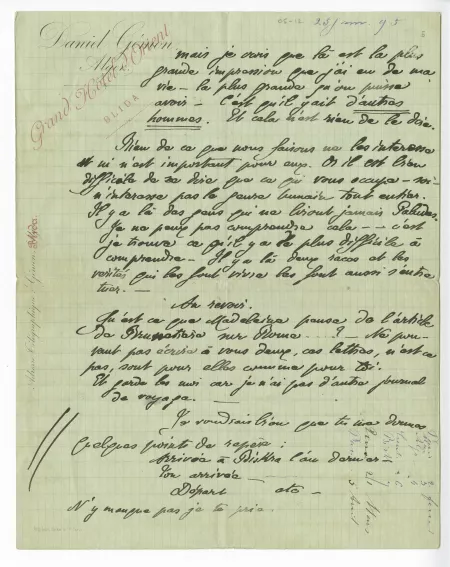 25 janv 95
Daniel Gimon
Alger
Grand Hôtel d'Orient
BLIDA
mais je crois que là est la plus
grande impression que j'ai eu de ma
vie – la plus grande qu'on puisse
avoir – c'est qu'il y ait d'autres
hommes. Et cela n'est rien de le dire.
Rien de ce que nous faisons ne les intéresse
ni n'est important pour eux. Or il est bien
difficile de se dire que ce qui vous occupe
n'intéresse pas le genre humain tout entier.
Il y a là des gens qui ne liront jamais Paludes.
Je ne peux pas comprendre cela – c'est
je trouve ce qu'il y a de plus difficile à
comprendre – Il y a là deux races et les
vérités qui les font vivre les font aussi s'entre
tuer –
Au revoir.
Qu'est ce que Madeleine pense de l'article
de Brunetière sur Rome – ? Ne pou-
vant pas écrire à vous deux, ces lettres, n'est ce
pas, sont pour elles comme pour toi.
Et garde les moi car je n'ai pas d'autre journal
de voyage –
Je voudrais bien que tu me donnes
quelques points de repère :
Arrivée à Biskra l'an dernier
Ton arrivée –
Départ etc –
N'y manque pas je te prie.